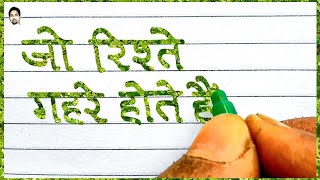 जो रिश्ते
गहरे होते हैं